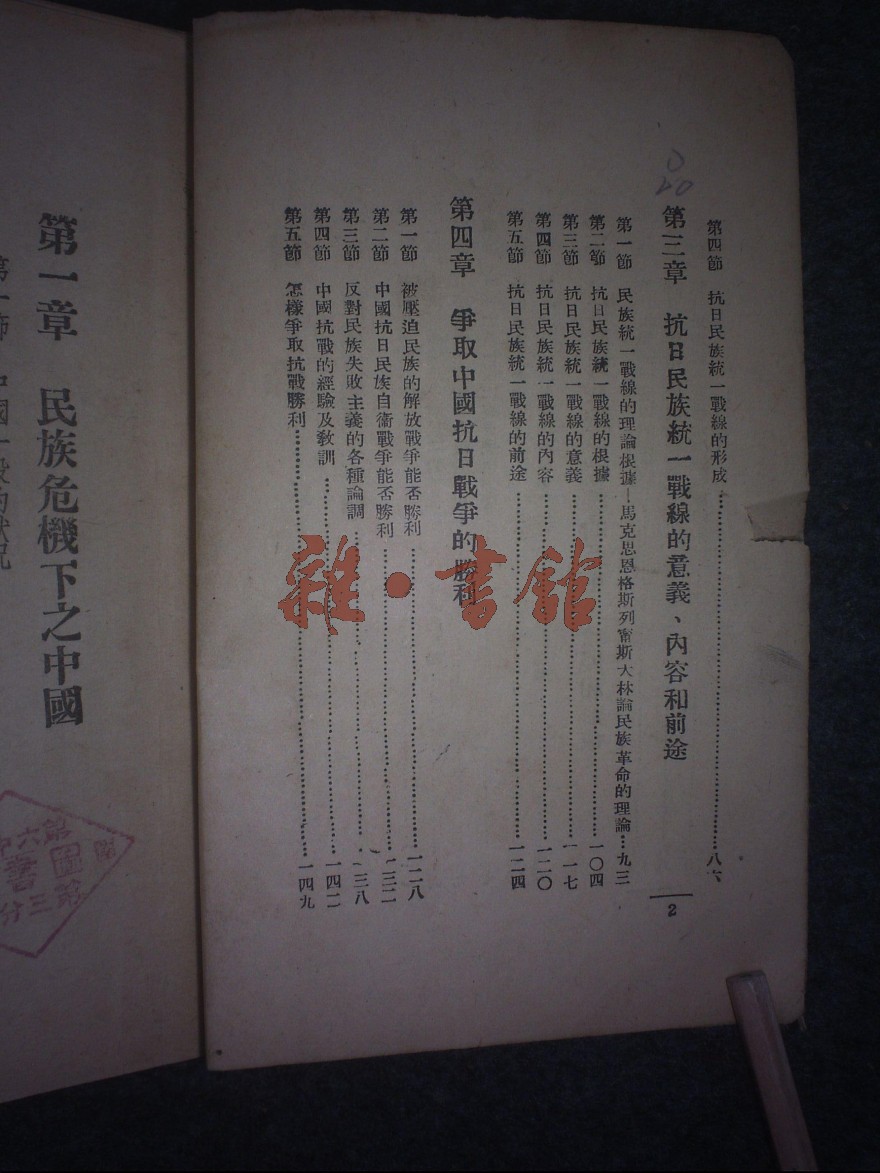 第四節 抗日民族統一戰線的形成……八六
第三章 抗日民族統一戰線的意義、內容和前途
第一節 民族統一戰線的理論根據—馬克思恩格斯列甯斯大林論民族革命的理論…九三
第二節 抗日民族統一戰線的根據……一〇四
第三節 抗日民族統一戰線的意義……一一七
第四節 抗日民族統一戰線的內容……一二〇
第五節 抗日民族統一戰線的前途……一二四
第四章 爭取中國抗日戰爭的勝利
第一節 被壓迫民族的解放戰爭能否勝利……一二八
第二節 中國抗日民族自衛戰爭能否勝利……一三二
第三節 反對民族失敗主義的各種論調……一三八
第四節 中國抗戰的經驗及敎訓……一四二
第五節 怎樣爭取抗戰勝利……一四九
2
雜·書館
第一章 民族危機下之中國
第一節 中國一般的狀況
第六中
圖書館
第三分